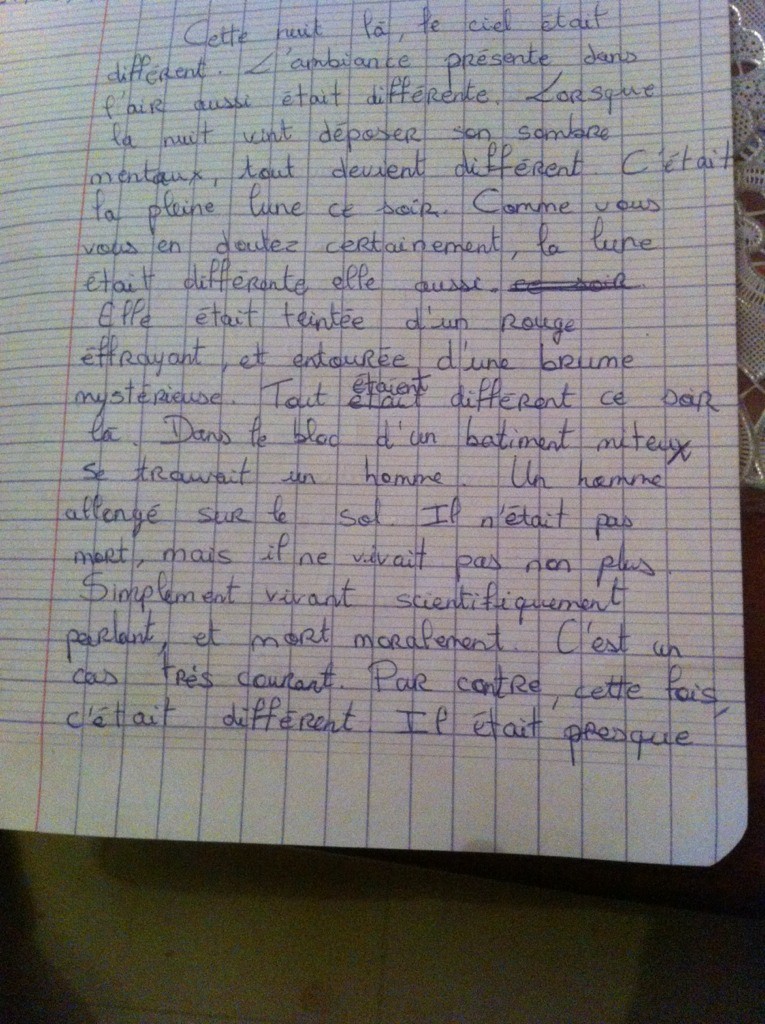 Cette nuit là, le ciel était
différent. L'ambiance présente dans
l'air aussi était différente. Lorsque
la nuit vint déposer son sombre
mentaux, tout devient différent. C'était
la pleine lune ce soir. Comme vous
vous en doutez certainement, la lune
était différente elle aussi. ce soir
Elle était teintée d'un rouge
éffrayant, et entourée d'une brume
mystérieuse. Tout était étaient différent ce soir
là. Dans le bloc d'un batiment miteux
se trouvait un homme. Un homme
allongé sur le sol. Il n'était pas
mort, mais il ne vivait pas non plus.
Simplement vivant scientifiquement
parlant, et mort moralement. C'est un
cas très courant. Par contre, cette fois,
c'était différent. Il était presque